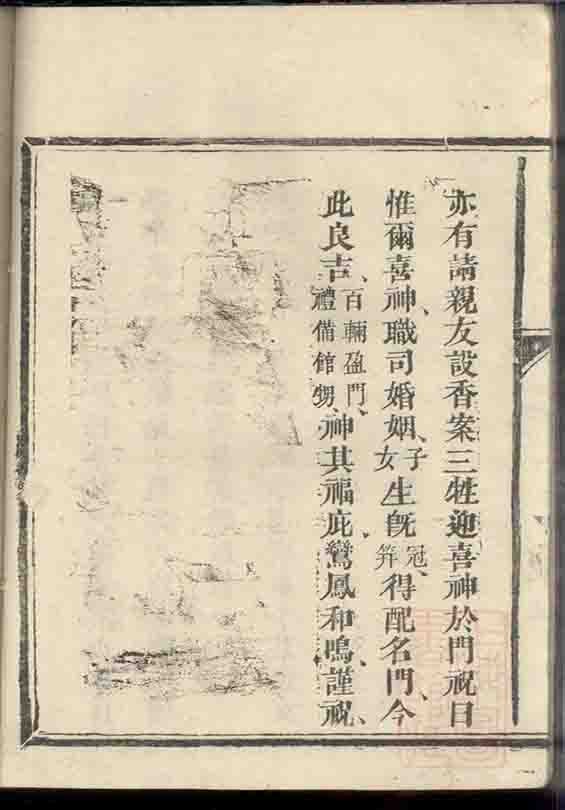 亦有請親友設香案三牲迎喜神於門祝曰
惟爾喜神、職司婚姻、子女生旣冠笄、得配名門、今
此良吉、百輛盈門、禮備館甥、神其福庇、鸞鳳和鳴、謹祝、